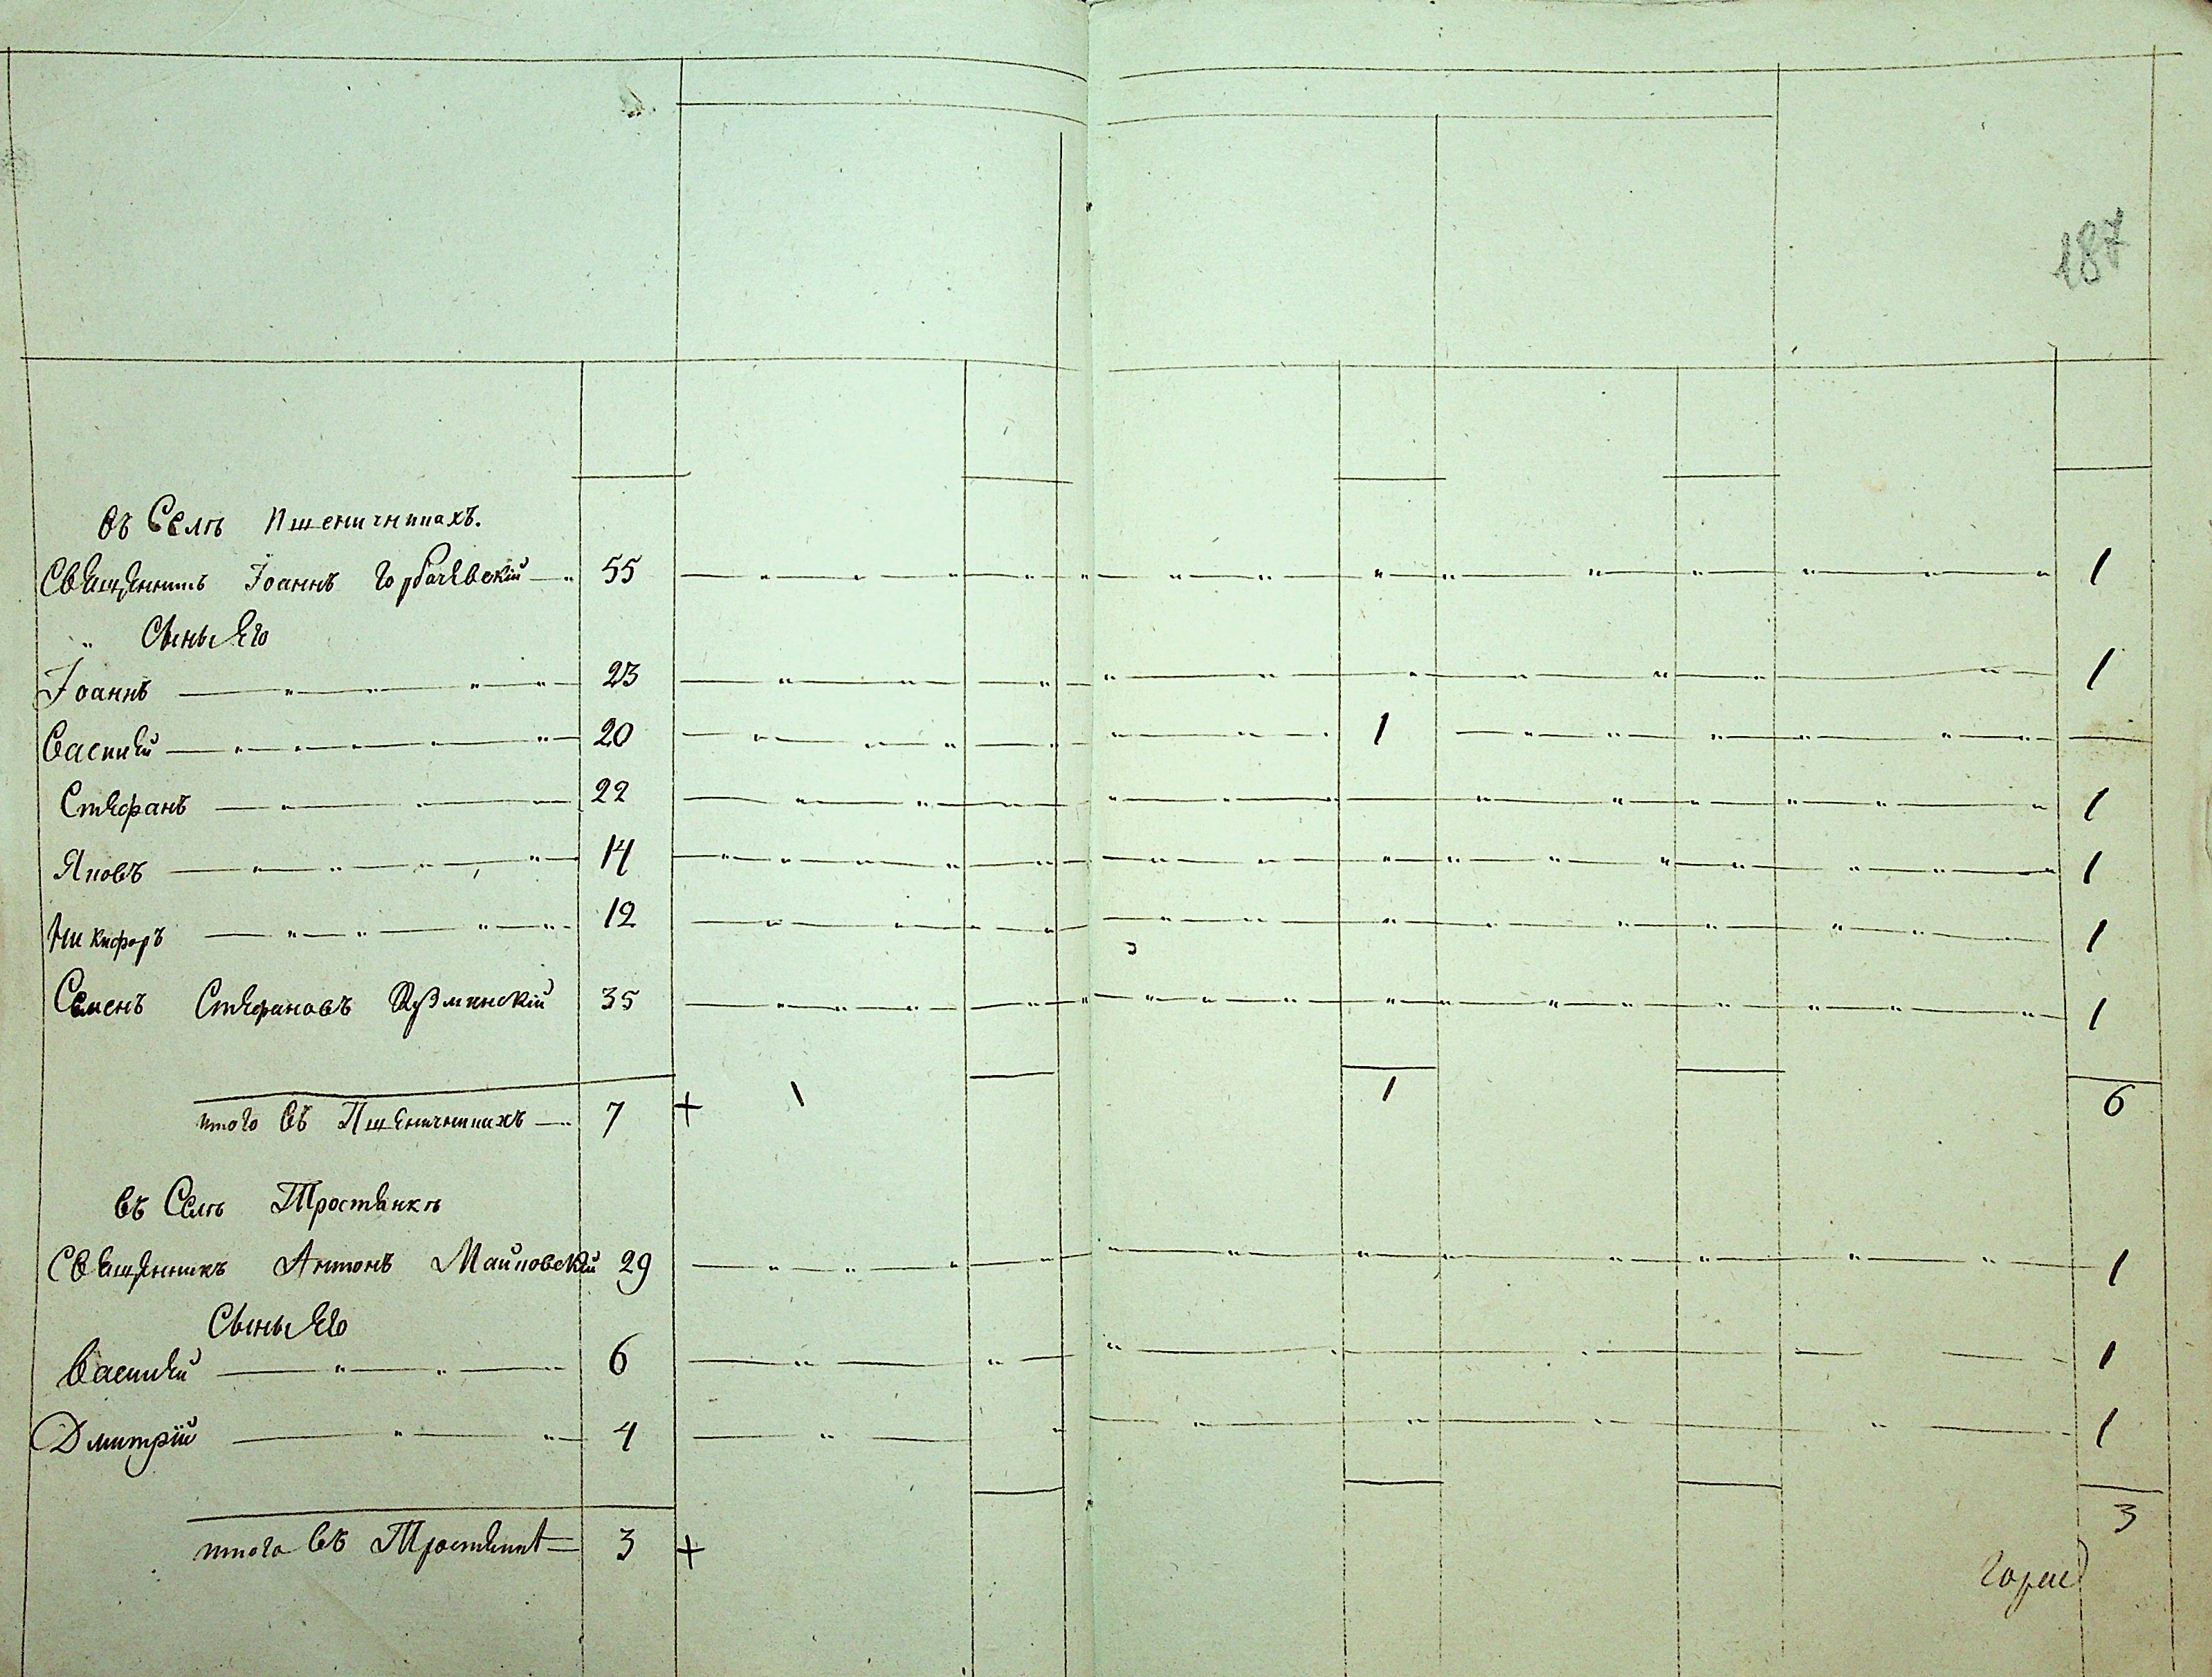 187
въ Селѣ Пшеничникахъ.
Священникъ Іоаннъ Горбачевскій — „ 55 1
„ Сыны Его
Іоаннъ 23 1
Василій 20 1 —
Стефанъ 22 1
Яковъ 14 1
Никифоръ 12 1
Семенъ Стефановъ Кузминскій 35 1
итого въ Пшеничникахъ 7 + 1 1 6
въ Селѣ Тростянкѣ
Священникъ Антонъ Майковскій 29 1
Сыны Его
Василій 6 1
Дмитрій 4 1
итого въ Тростянкѣ 3 + 3